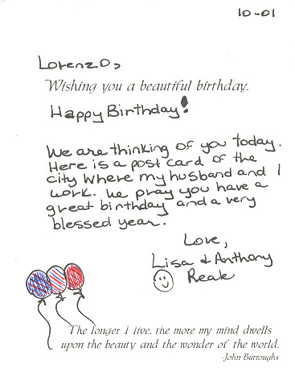 10-01
Lorenzo,
Wishing you a beautiful birthday.
Happy Birthday!
We are thinking of you today.
Here is a post card of the
city where my husband and I
work. We pray you have a
great birthday and a very
blessed year.
Love,
Lisa & Anthony
Reale
The longer I live, the more my mind dwells
upon the beauty and the wonder of the world.
-John Burroughs